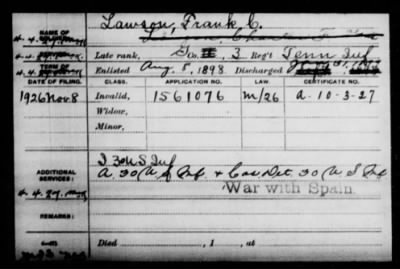 Lawson, Frank C.
NAME OF SOLDIER:
4.4.27.
Late rank, Co. 3 Reg't Tenn Inf
TERM OF
Enlisted Aug 5, 1898 Discharged
DATE OF FILING. CLASS. APPLICATION NO. LAW. CERTIFICATE NO.
1926 Nov 8 Invalid, 1561076 M/26 A-10-3-27
Widow,
Minor,
ADDITIONAL SERVICES: I 30 U S Inf
A 30 U S Inf + Cas Det 30 U S Inf
4.4.27.
War with Spain
REMARKS:
Died , 1 , at